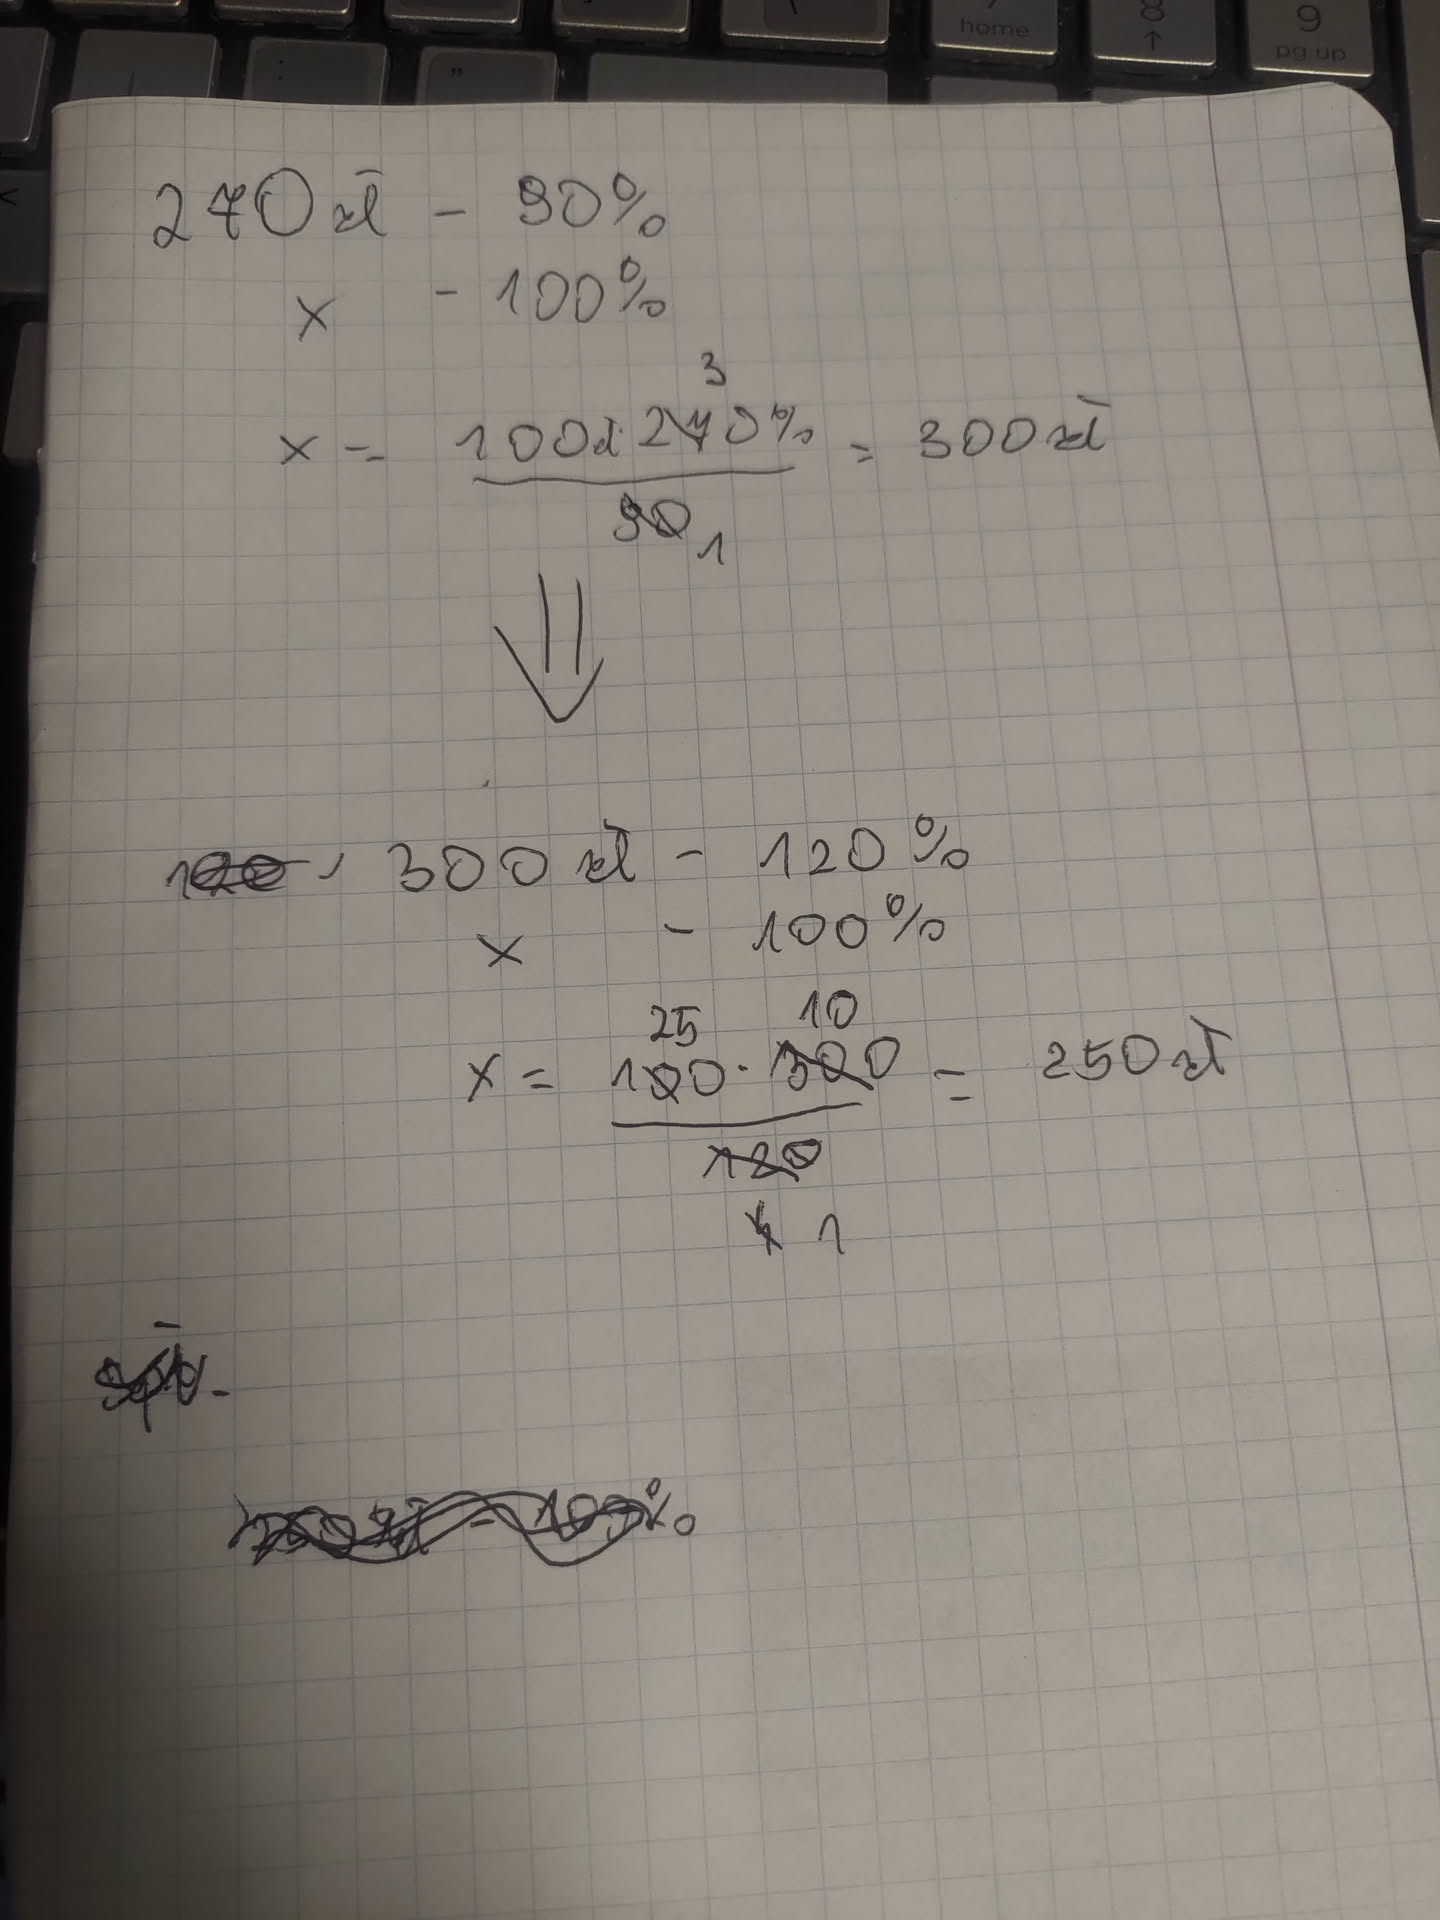 home
8
↑
9
pg up
:
"
<
270 zł - 90%
x - 100%
3
x = 100zł · 270% = 300 zł
90 1
300 zł - 120%
x - 100%
25 10
x = 100 · 300 = 250 zł
120
4 1